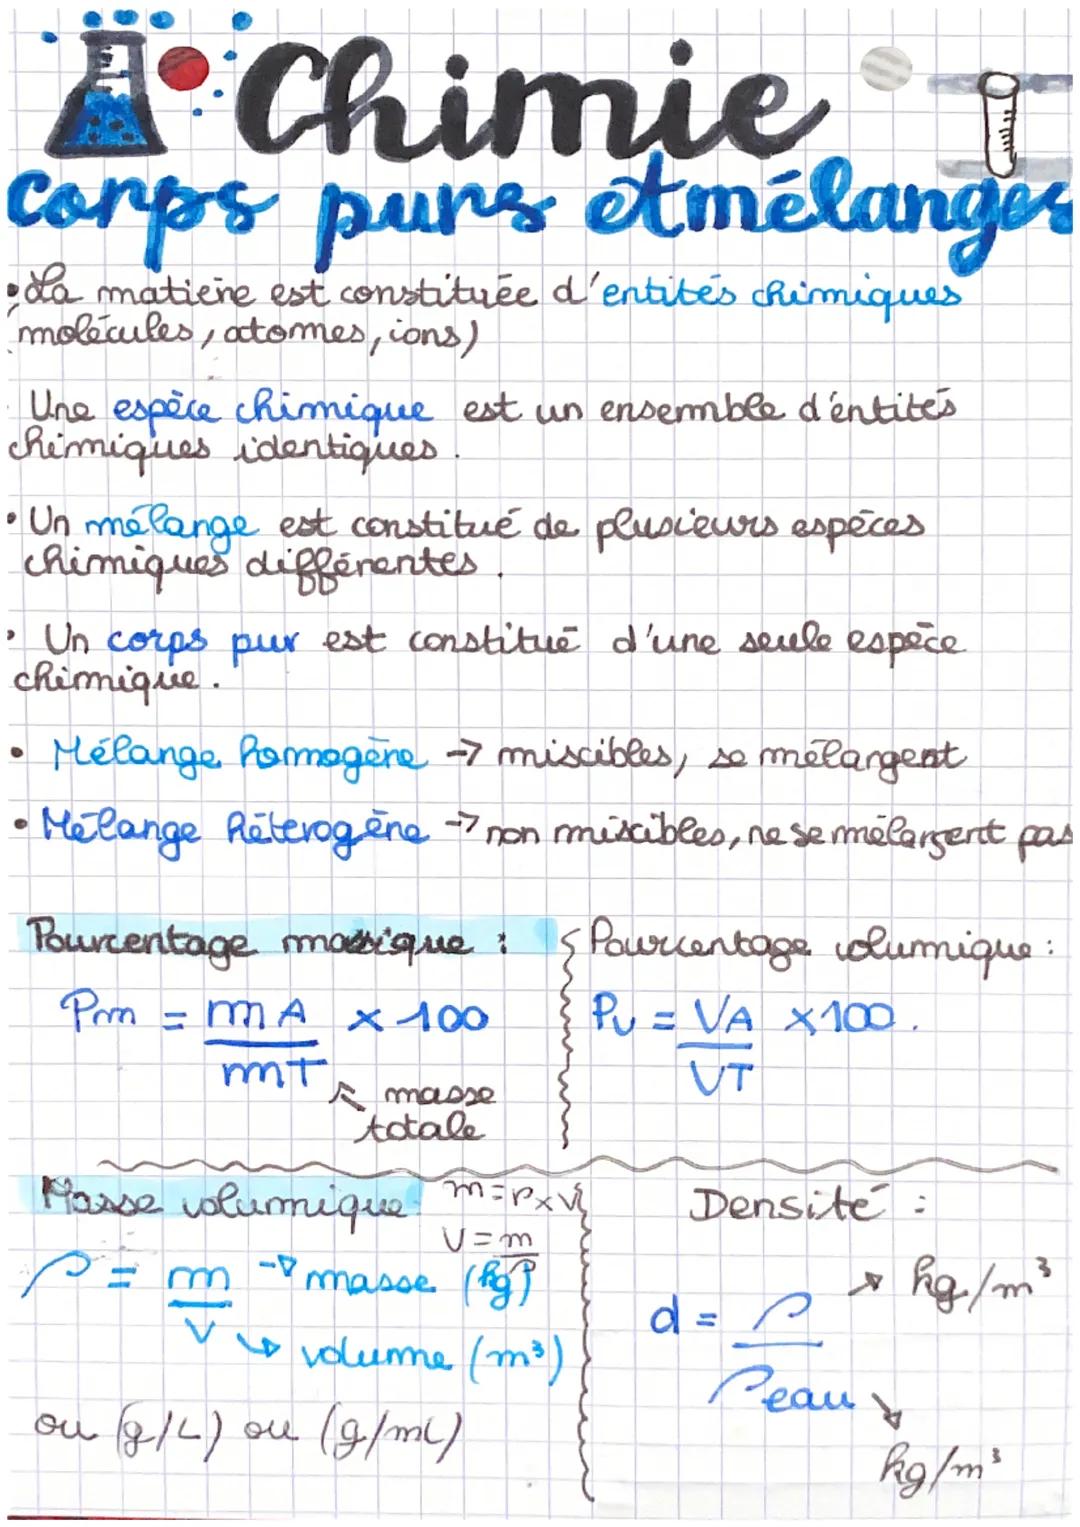 Chimie
corps purs et mélanges
• La matière est constituée d'entités chimiques
molécules, atomes, ions)
Une espèce chimique est un ensemble d'entités
chimiques identiques.
• Un mélange est constitué de plusieurs espèces
chimiques différentes.
• Un corps pur est constitué d'une seule espèce
chimique.
• Mélange homogène → miscibles, se mélangent
• Mélange hétérogène → non miscibles, ne se mélangent pas
Pourcentage massique :
Pm = mA / mT × 100
masse
totale
Pourcentage volumique :
Pv = VA / VT × 100.
Masse volumique
m = ρ × V
V = m / ρ
ρ = m / V
→ masse (kg)
↳ volume (m³)
ou (g/L) ou (g/mL)
Densité :
d = ρ / ρeau
→ kg/m³
↘ kg/m³